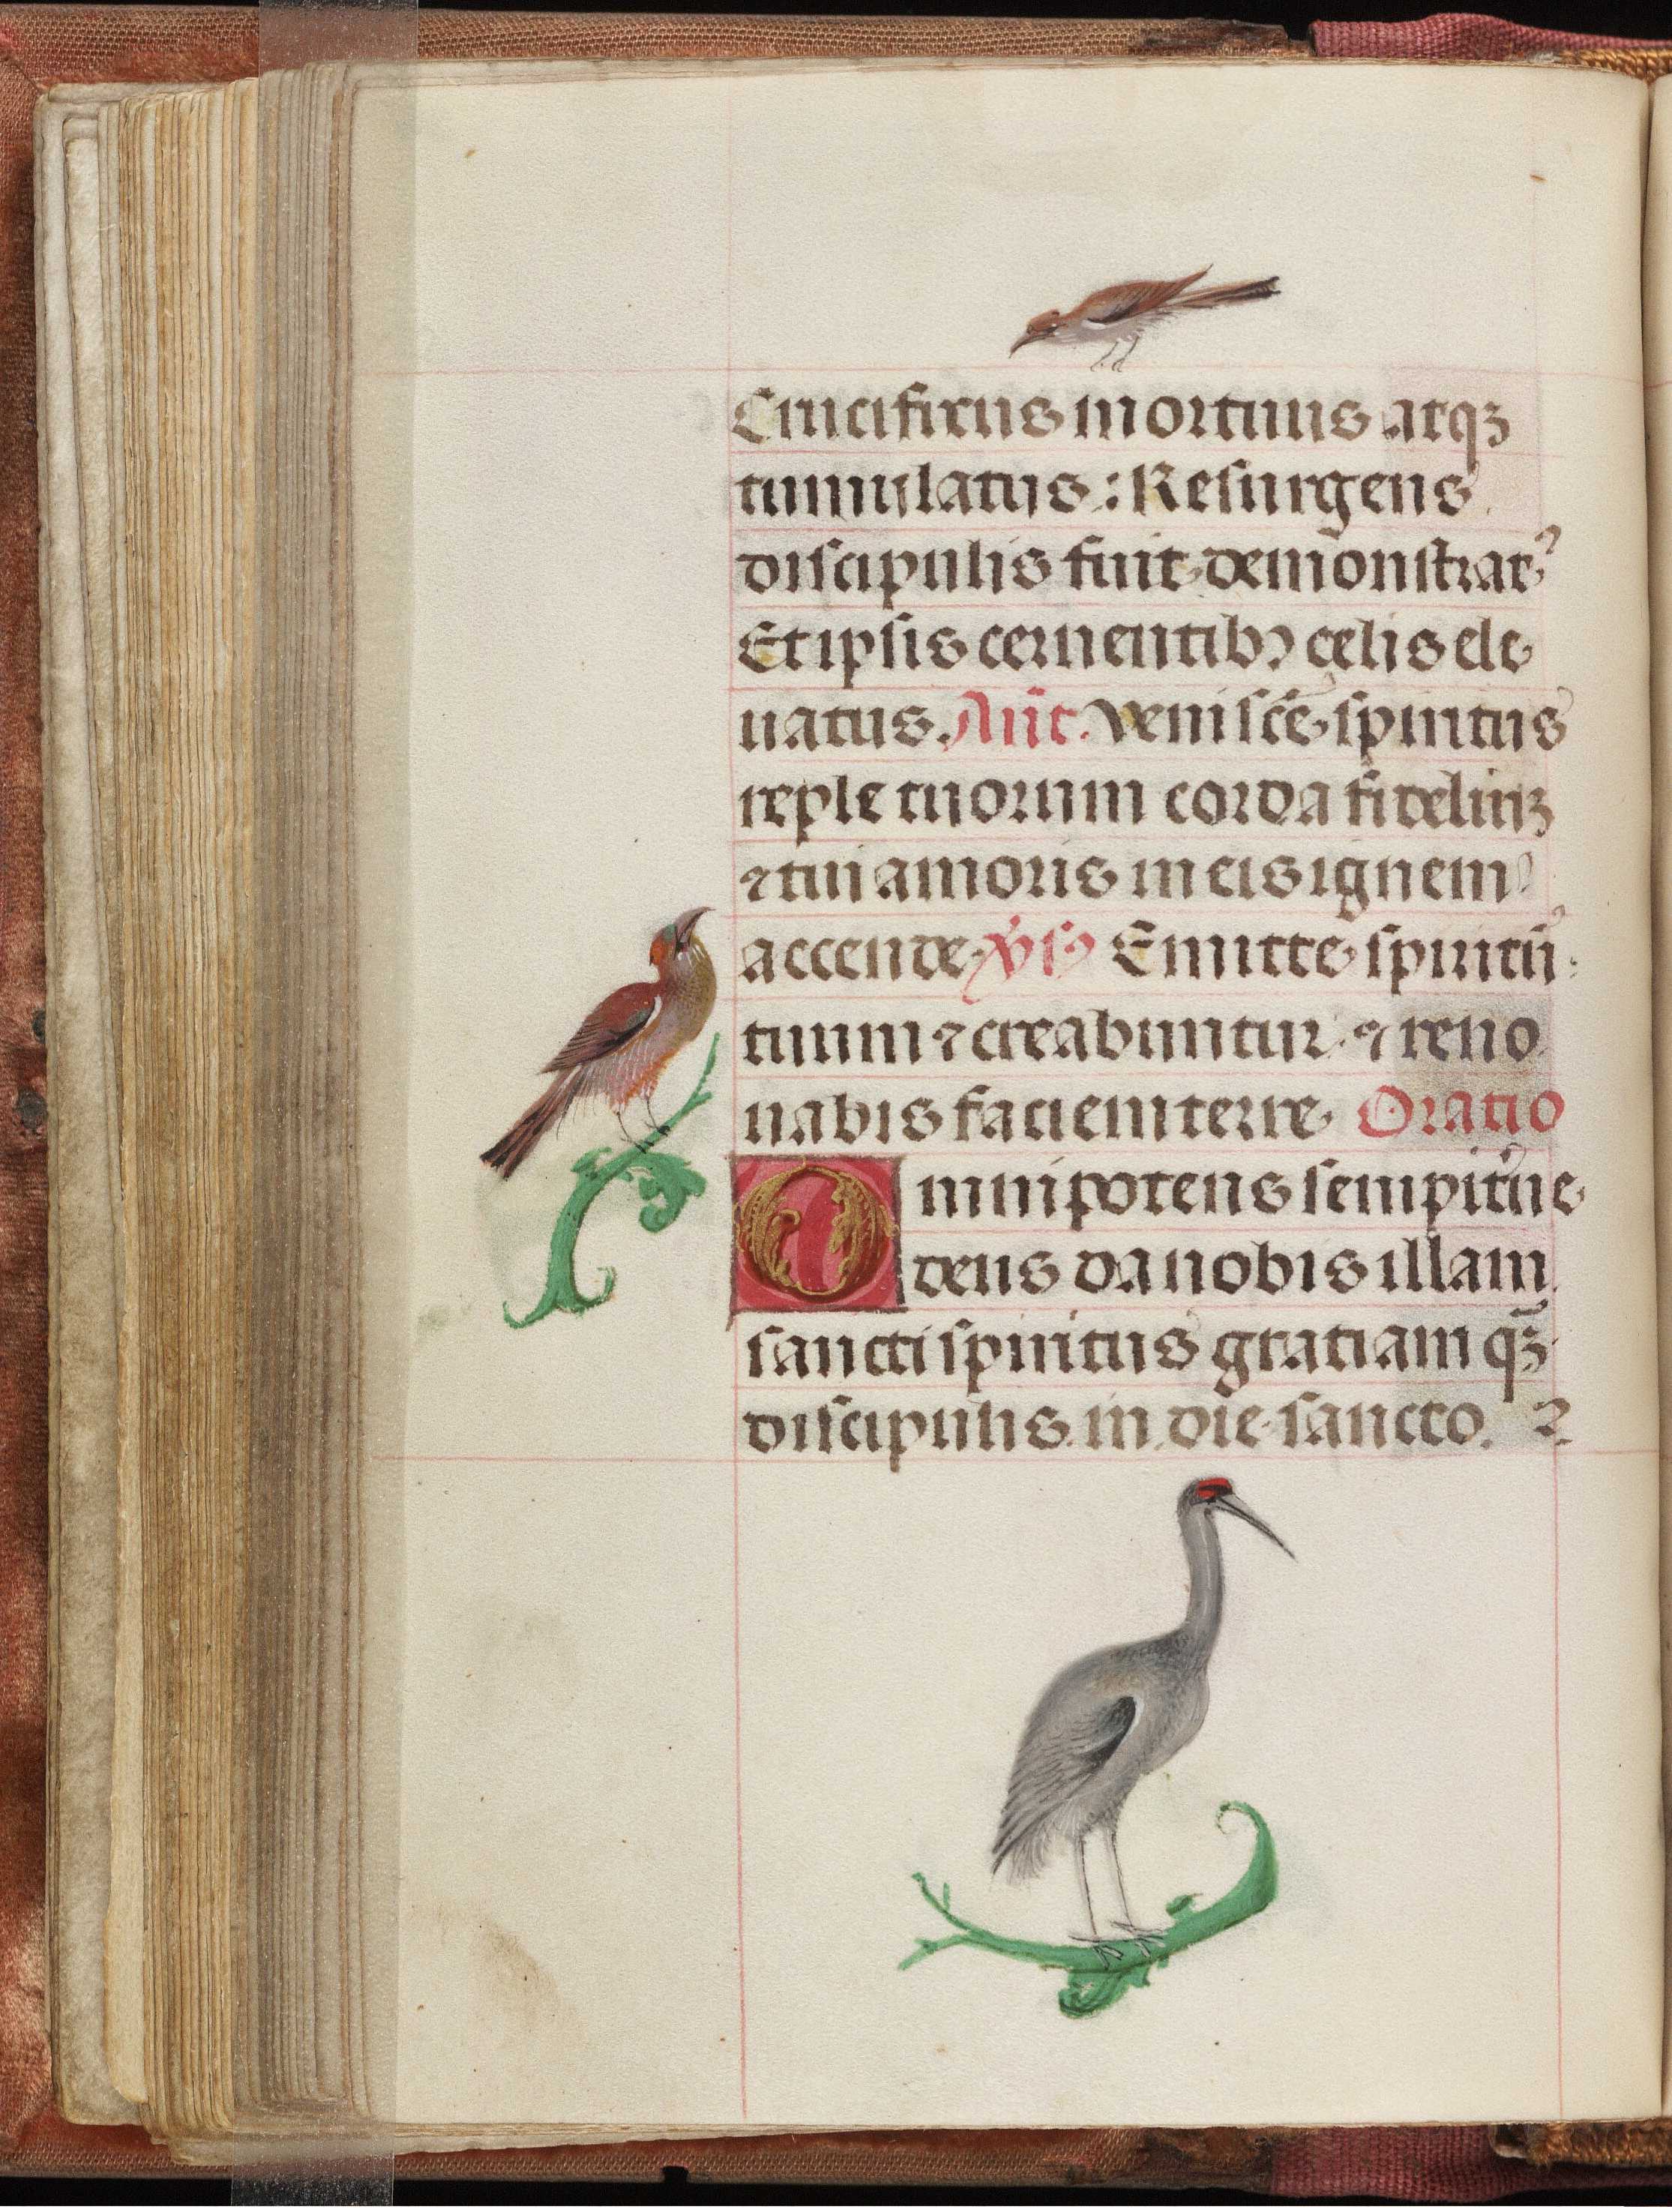 Crucifixus mortuus atqꝫ
tumulatus: Resurgens
discipulis fuit demonstratꝰ
Et ipsis cernentibꝰ celis ele
uatus. Añt. Veni sc̃e spiritus
reple tuorum corda fideliuꝫ
⁊ tui amoris in eis ignem
accende. v̾sꝰ Emitte spiritũ
tuum ⁊ creabuntur. ⁊ reno
uabis faciem terre. Oratio
Omnipotens sempit̾ne
deus da nobis illam
sancti spiritus gratiam qꝫ̃
discipulis in die sancto. ꝛ